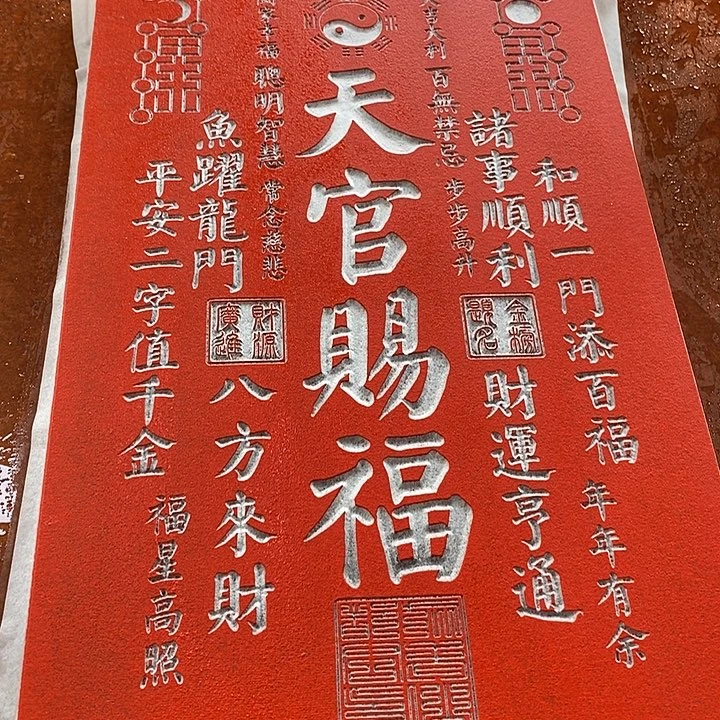 和順一門添百福
年年有余
諸事順利
金榜題名
財運亨通
大吉大利
百無禁忌
步步高升
天官賜福
幸福
聰明智慧
常念慈悲
魚躍龍門
財源廣進
八方來財
平安二字值千金
福星高照